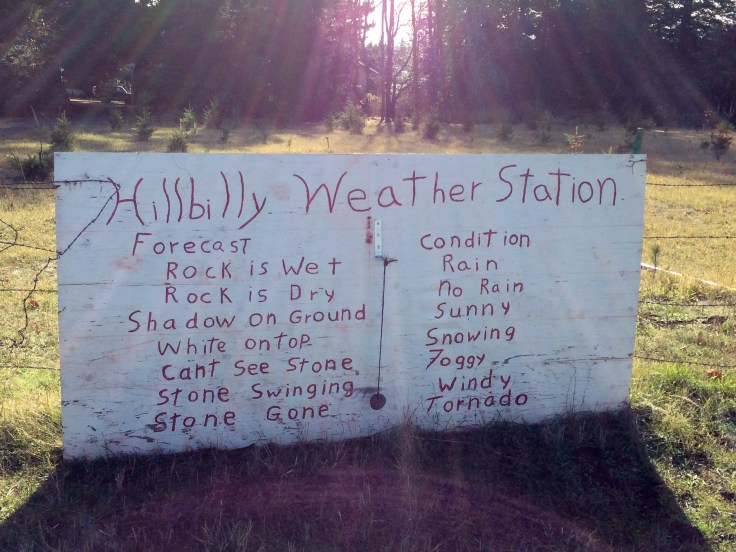 Hillbilly Weather Station
Forecast Condition
Rock is Wet Rain
Rock is Dry No Rain
Shadow on Ground Sunny
White on top Snowing
Cant See Stone Foggy
Stone Swinging Windy
Stone Gone Tornado